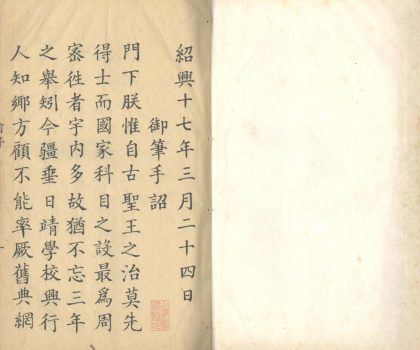 紹興十七年三月二十四日
御筆手詔
門下朕惟自古聖王之治莫先
得士而國家科目之設最爲周
宻徃者宇内多故猶不忘三年
之舉矧今疆垂日靖學校興行
人知鄉方顧不能率厥舊典網